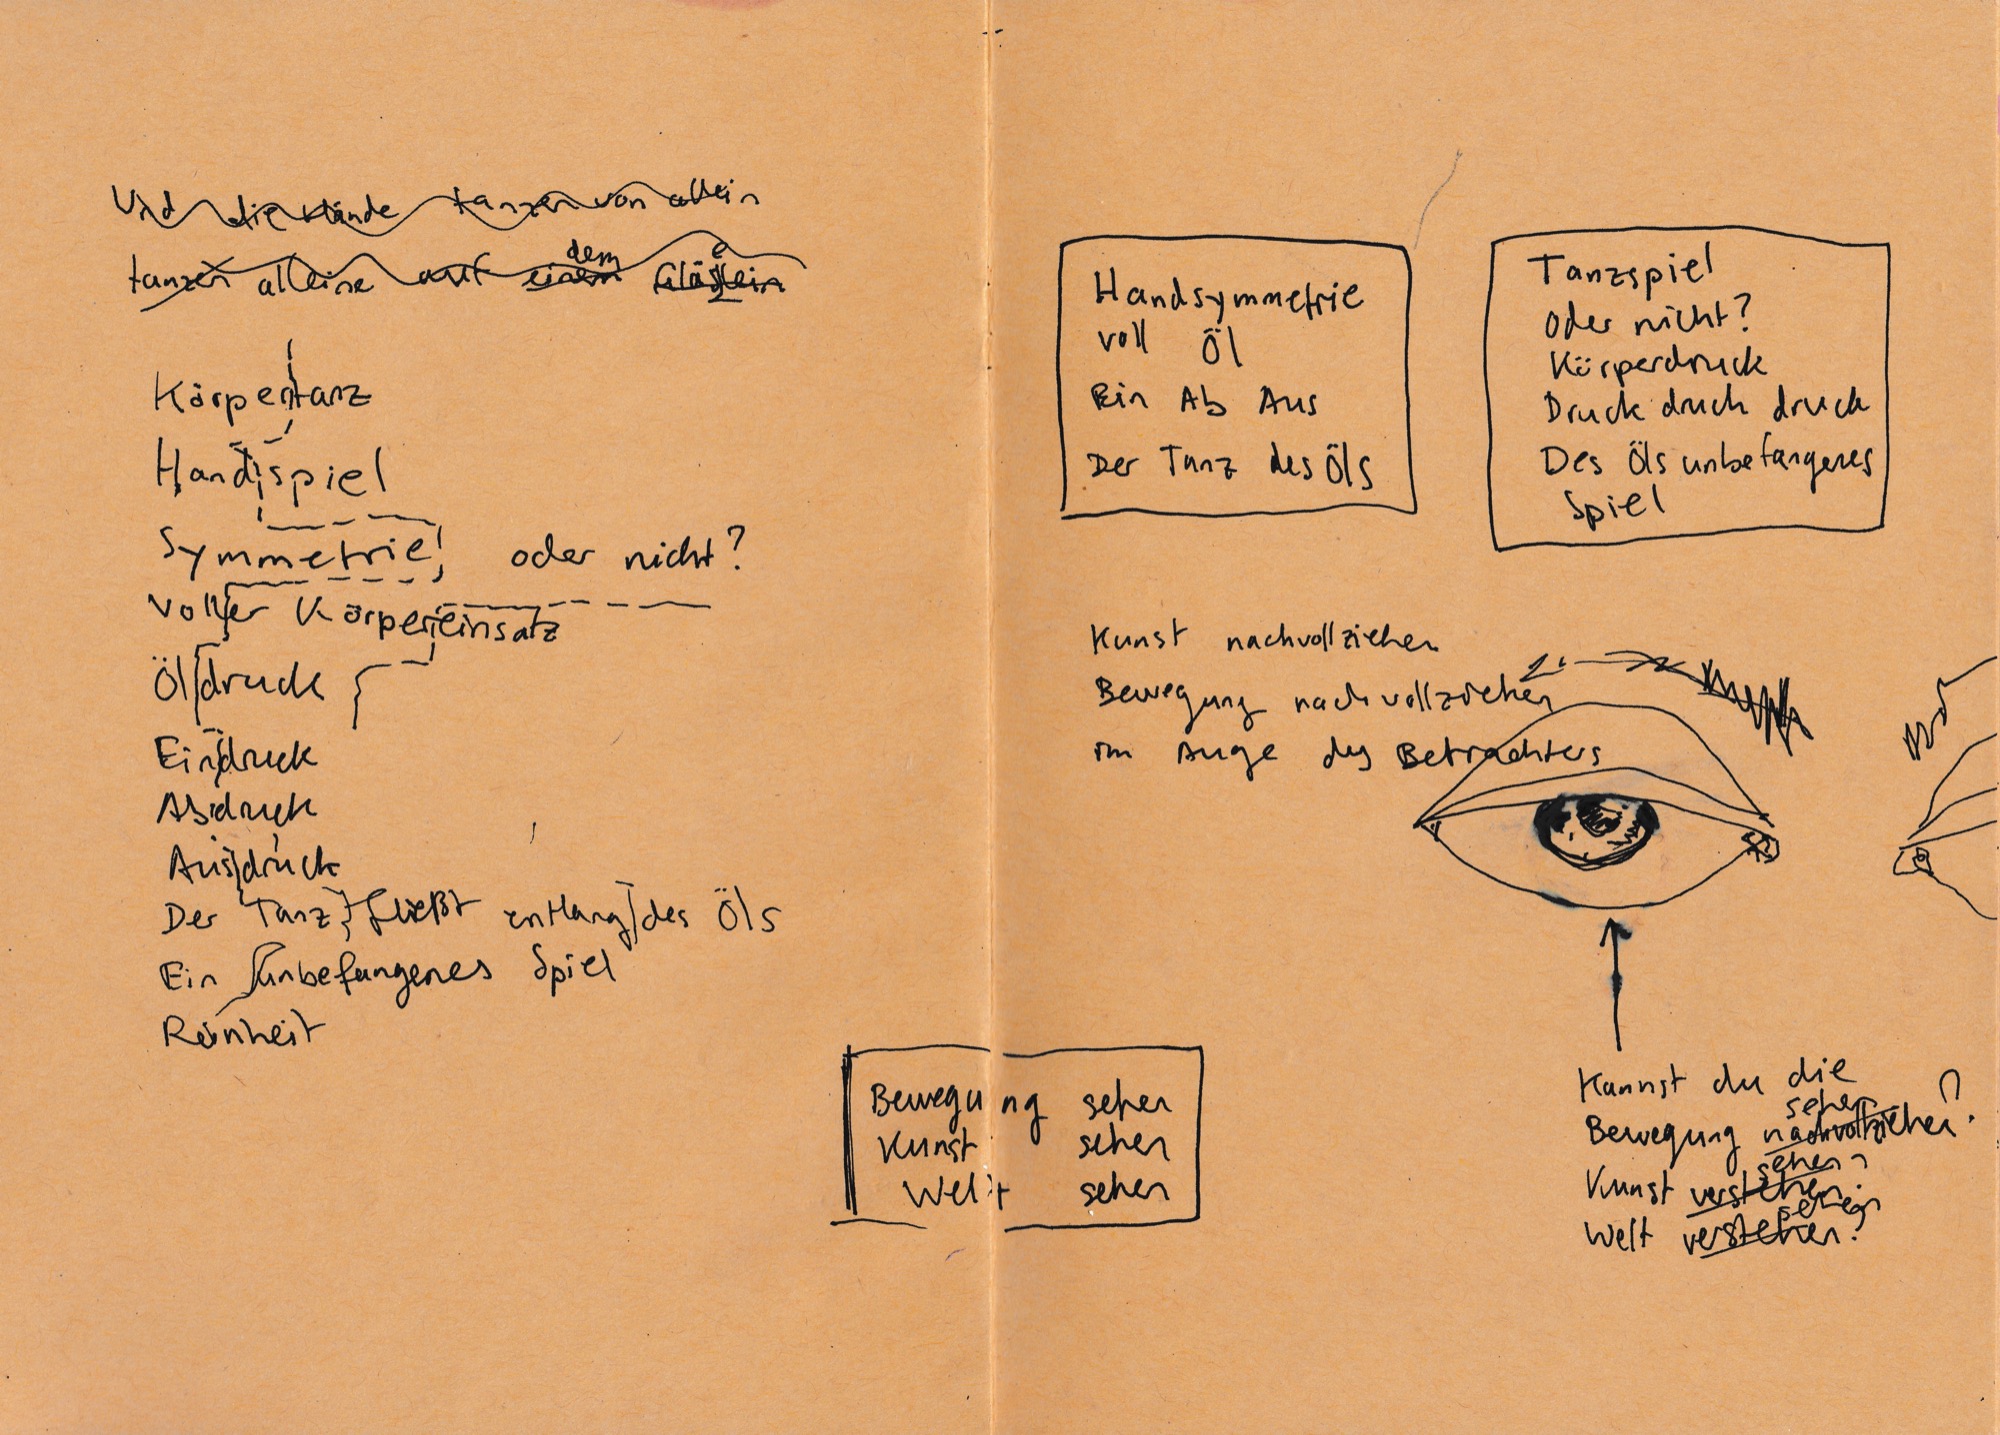 Und die Hände tanzen von allein
dem
tanzen alleine auf einem
Körpertanz
Handspiel
Symmetrie oder nicht?
Voller Körpereinsatz
Öldruck
Eindruck
Abdruck
Ausdruck
Der Tanz fließt entlang des Öls
Ein unbefangenes Spiel
Reinheit
Handsymmetrie
voll Öl
Ein Ab Aus
Der Tanz des Öls
Tanzspiel
oder nicht?
Körperdruck
Druck druck druck
Des Öls unbefangenes
Spiel
Kunst nachvollziehen
Bewegung nachvollziehen
im Auge des Betrachters
Bewegung sehen
Kunst sehen
Welt sehen
Kannst du die
sehen ?
Bewegung nachvollziehen?
sehen?
Kunst verstehen
sehen
Welt verstehen?